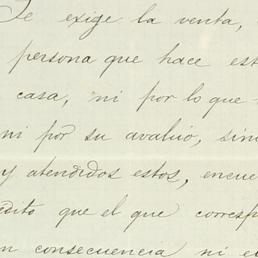 Se exige la venta,
persona que hace est
casa, ni por lo que
ni por su avaluo, sin
y atendidos estos, encue
édito que el que corresp
n consecuencia ni e